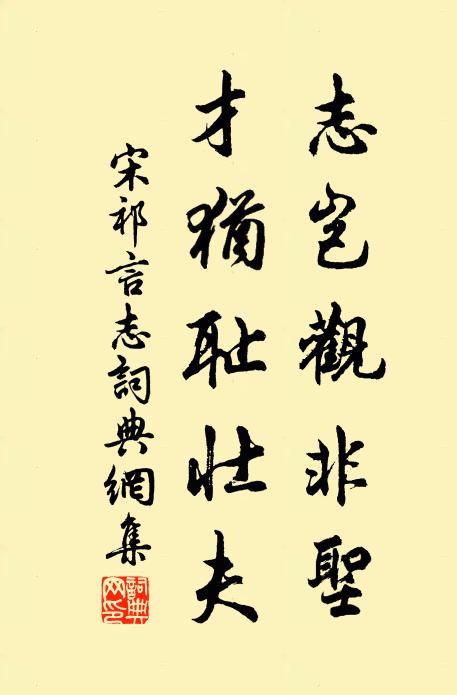 志岂觀非聖
才猶耻壯夫
宋祁言志詞典網集
詞典网印